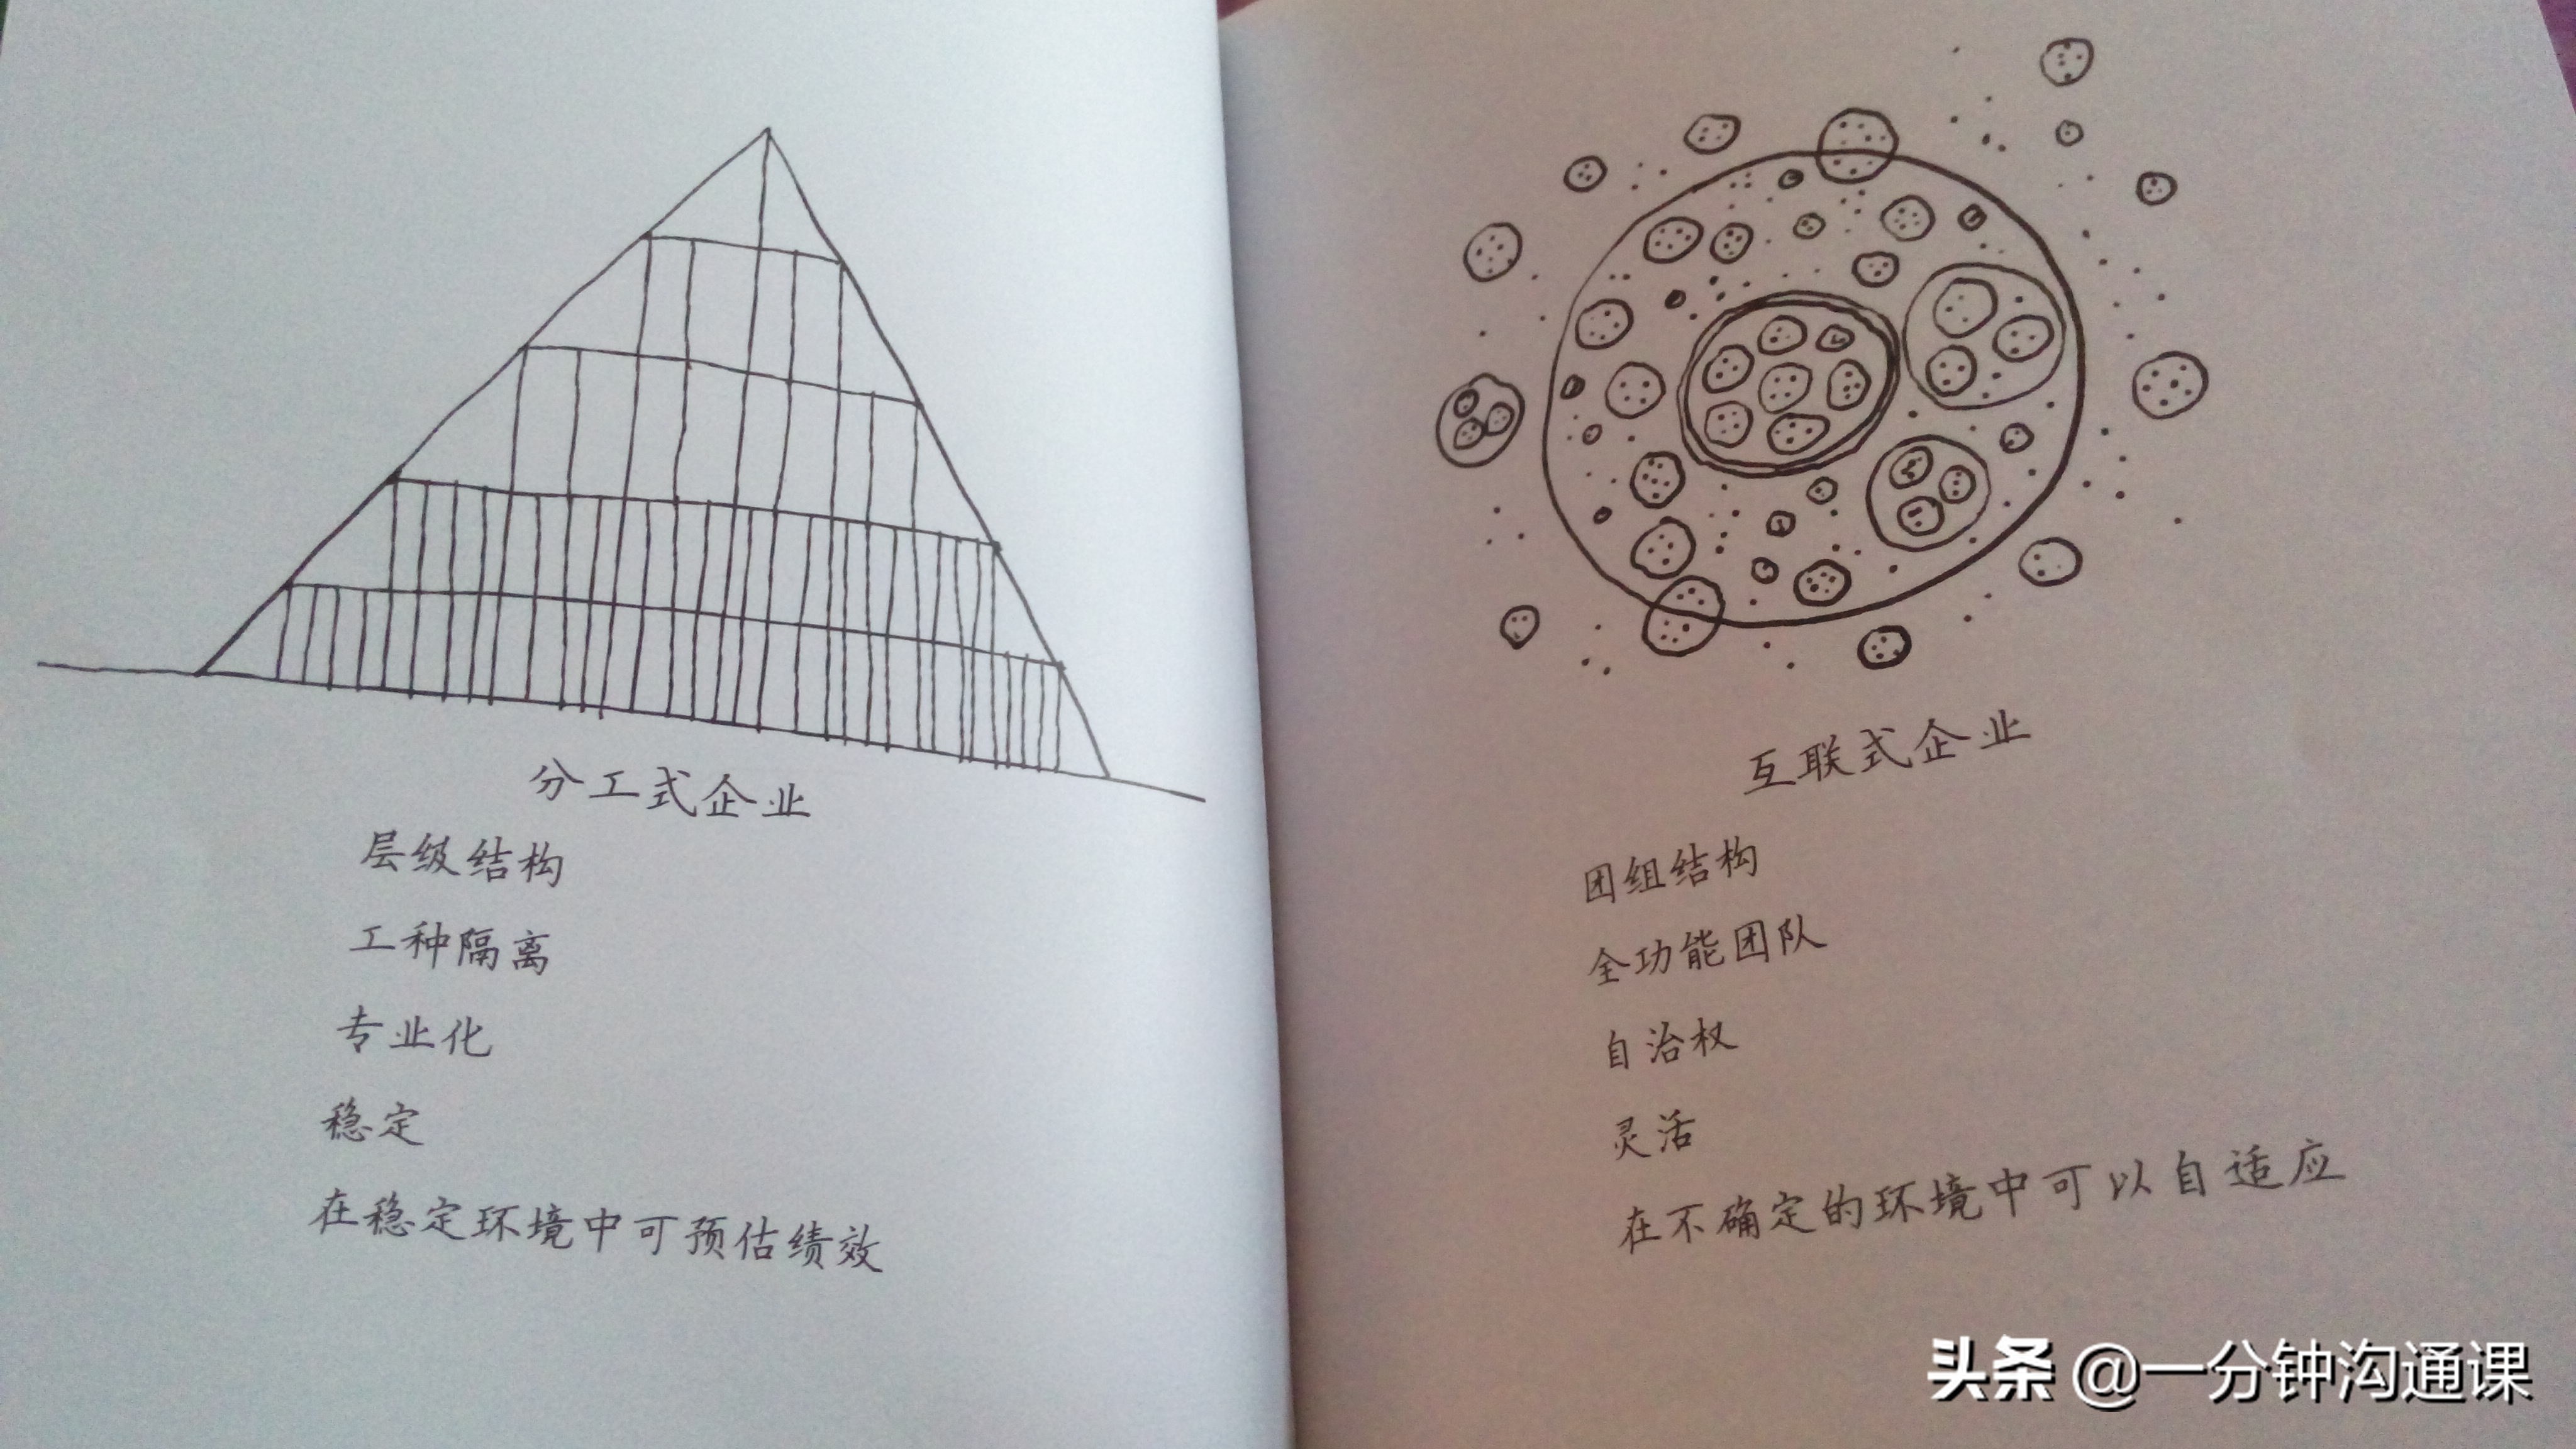 分工式企业
层级结构
工种隔离
专业化
稳定
在稳定环境中可预估绩效
互联式企业
团组结构
全功能团队
自治权
灵活
在不确定的环境中可以自适应
头条 @一分钟沟通课